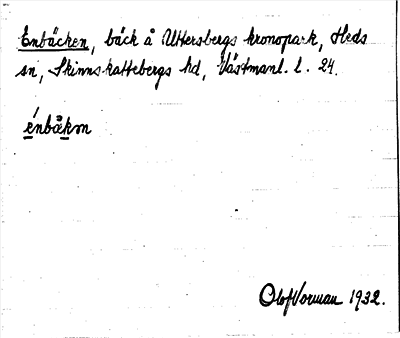 Enbäcken, bäck å Uttersbergs kronopark, Heds
sn, Skinnskattebergs hd, Västmanl. l. 24.
énbäkən
Olof Vorman 1932.